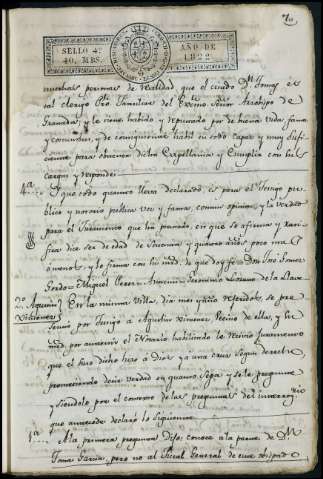 70
SELLO 4º
40. MRS.
AÑO DE
1822
muchas personas de realidad que el citado Dn Tomas es
tal clerigo Pro Familiar del Excmo Señor Arzobispo de
Granada y le tiene havido y reputado por de buena vida fama
y costumbres, y de consiguiente habil en todo capaz y muy sufi-
ciente para obtener dichas Capellanias y cumplir con sus
cargos y responder
4ª... Y que todo quanto lleva declarado es para el Testigo pu-
blico y notorio publica voz y fama, comun opinion, y la verdad
para el Juramento que ha prestado, en que se afirma y rati-
fica dice ser de edad de y quatro años poco mas
o menos, y lo firma con su mrd. de que doy fe Don José Gomez
Gordo Miguel Perez Geronimo Lozano de la Llave
Agustin
Ximenez
En la misma Villa, dia mes y año referidos, se pre-
sento por Testigo a Agustin Ximenez Vecino de ella, y Su
mrd por antemi el Notario havilitado le recivio juramento
que el hizo dicho hizo á Dios y a una cruz segun derecho
prometiendo decir verdad en quanto sepa y se le pregunte
y siendolo por el contexto de las preguntas del interrogatorio
que antecede declaró lo siguiente
1ª... A la primera pregunta Dijo: conoce a la parte de Dn
Tomas Garcia, pero no al Fiscal General de este obispado